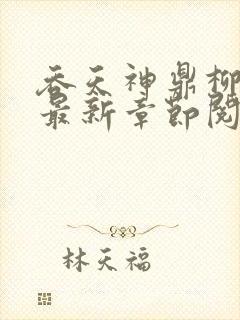 吞天神鼎柳
最新章節閱
林天福